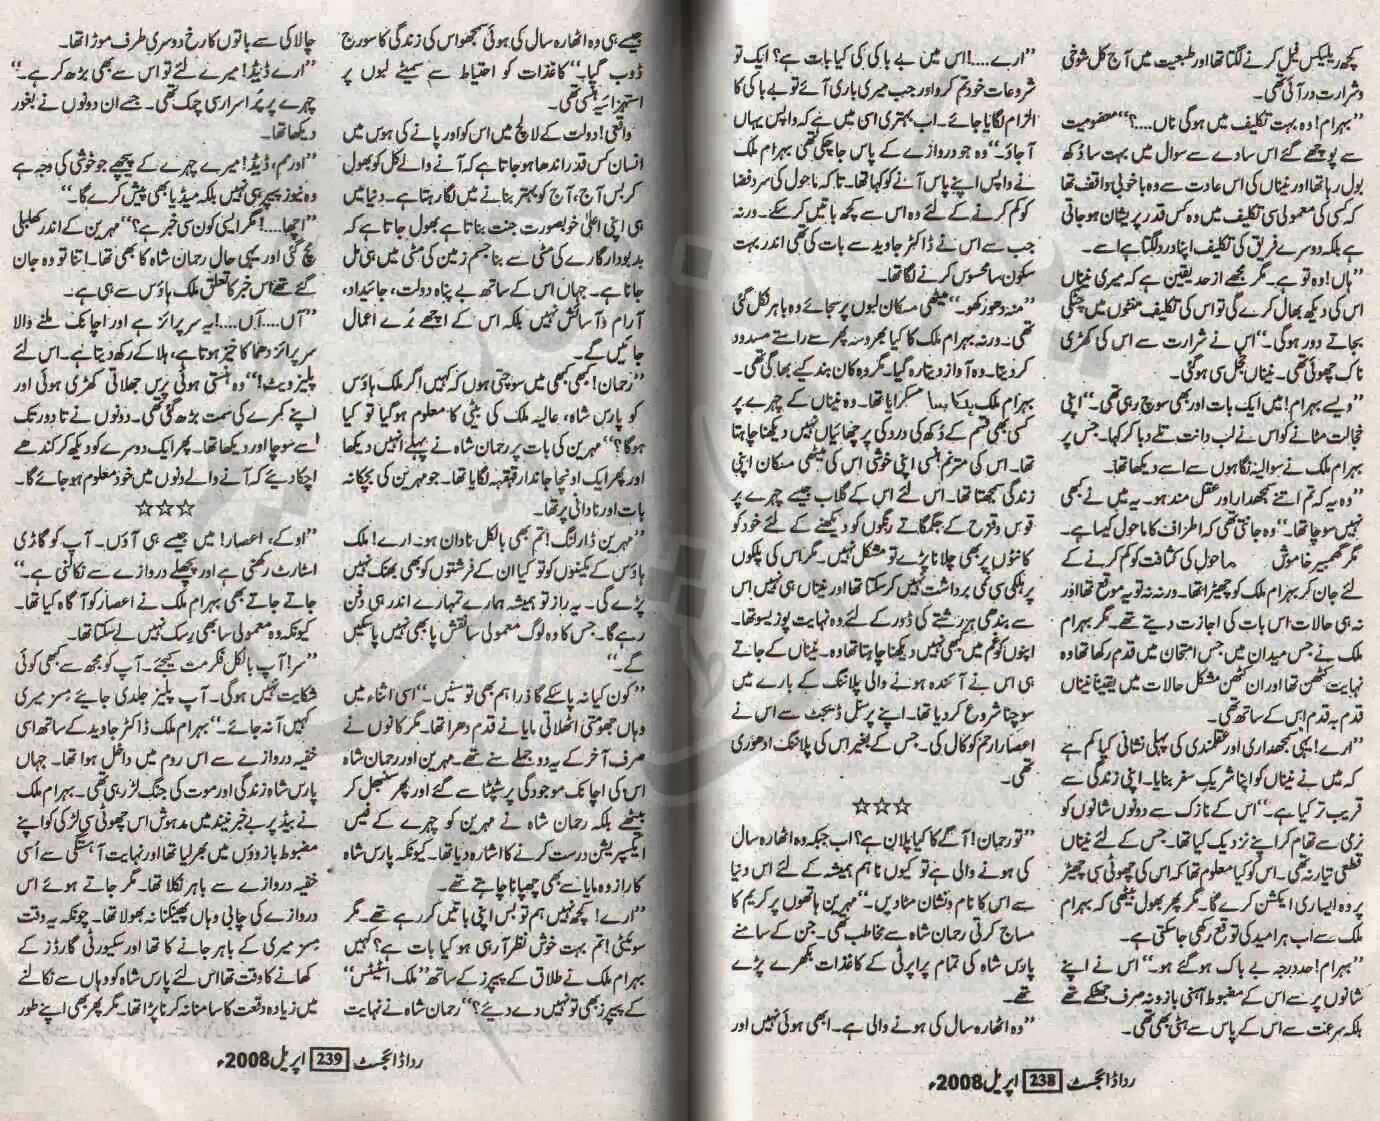 کچھ ریلیکس فیل کرنے لگتا تھا اور طبیعت میں آج کل شوخی
و شرارت در آئی تھی۔
”بہرام! وہ بہت تکلیف میں ہوگی ناں....؟“ معصومیت
سے پوچھے گئے اس سادے سے سوال میں بہت سا دُکھ
بول رہا تھا اور نیناں کی اس عادت سے وہ باخوبی واقف تھا
کہ کسی کی معمولی سی تکلیف میں وہ کس قدر پریشان ہوجاتی
ہے بلکہ دوسرے فریق کی تکلیف اپنا درد لگتا ہے اسے۔
”ہاں! وہ تو ہے۔ مگر مجھے از حد یقین ہے کہ میری نیناں
اس کی دیکھ بھال کرے گی تو اس کی تکلیف منٹوں میں چٹکی
بجاتے دور ہوگی۔“ اس نے شرارت سے اس کی کھڑی
ناک چھوئی تھی۔ نیناں خجل سی ہوگئی۔
”ویسے بہرام! میں ایک بات اور بھی سوچ رہی تھی۔“ اپنی
خجالت مٹانے کو اس نے لب دانت تلے دبا کر کہا۔ جس پر
بہرام ملک نے سوالیہ نگاہوں سے اسے دیکھا تھا۔
”وہ یہ کہ تم اتنے سمجھدار اور عقل مند ہو۔ یہ میں نے کبھی
نہیں سوچا تھا۔“ وہ جانتی تھی کہ اطراف کا ماحول کیسا ہے۔
مگر گھمبیر خاموش ماحول کی کثافت کو کم کرنے کے
لئے جان کر بہرام ملک کو چھیڑا تھا۔ ورنہ نہ تو یہ موقع تھا اور
نہ ہی حالات اس بات کی اجازت دیتے تھے۔ مگر بہرام
ملک نے جس میدان میں جس امتحان میں قدم رکھا تھا وہ
نہایت کٹھن تھا اور ان کٹھن مشکل حالات میں یقیناً نیناں
قدم بہ قدم اس کے ساتھ تھی۔
”ارے! یہی سمجھداری اور عقلمندی کی پہلی نشانی کیا کم ہے
کہ میں نے نیناں کو اپنا شریکِ سفر بنایا۔ اپنی زندگی سے
قریب تر کیا ہے۔“ اس کے نازک سے دونوں شانوں کو
نرمی سے تھام کر اپنے نزدیک کیا تھا۔ جس کے لئے نیناں
قطعی تیار نہ تھی۔ اس کو کیا معلوم تھا کہ اس کی چھوٹی سی چھیڑ
پر وہ ایسا ری ایکشن کرے گا۔ مگر پھر بھول بیٹھی کہ بہرام
ملک سے اب ہر امید کی توقع رکھی جاسکتی ہے۔
”بہرام! حد درجہ بے باک ہوگئے ہو۔“ اس نے اپنے
شانوں پر سے اس کے مضبوط آہنی بازو نہ صرف جھٹکے تھے
بلکہ سرعت سے اس کے پاس سے ہٹی بھی تھی۔
”ارے....! اس میں بے باکی کی کیا بات ہے؟ ایک تو
شروعات خود تم کرو اور جب میری باری آئے تو بے باکی کا
الزام لگایا جائے۔ اب بہتری اسی میں ہے کہ واپس یہاں
آجاؤ۔“ وہ جو دروازے کے پاس جاچکی تھی بہرام ملک
نے واپس اپنے پاس آنے کو کہا تھا۔ تاکہ ماحول کی سرد فضا
کو کم کرنے کے لئے وہ اس سے کچھ باتیں کرسکے۔ ورنہ
جب سے اس نے ڈاکٹر جاوید سے بات کی تھی اندر بہت
سکون سا محسوس کرنے لگا تھا۔
”منہ دھو رکھو۔“ میٹھی مسکان لبوں پر سجائے وہ باہر نکل گئی
تھی۔ ورنہ بہرام ملک کا کیا بھروسہ پھر سے راستے مسدود
کردیتا۔ وہ آواز دیتا رہ گیا۔ مگر وہ کان بند کیے بھاگی تھی۔
بہرام ملک ہلکا سا مسکرایا تھا۔ وہ نیناں کے چہرے پر
کسی بھی قسم کے دُکھ کی درد کی پرچھائیاں نہیں دیکھنا چاہتا
تھا۔ اس کی مترنم ہنسی اپنی خوشی اس کی میٹھی مسکان اپنی
زندگی سمجھتا تھا۔ اس لئے اس کے گلاب جیسے چہرے پر
قوس و قزح کے جگمگاتے رنگوں کو دیکھنے کے لئے خود کو
کانٹوں پر بھی چلانا پڑے تو مشکل نہیں۔ مگر اس کی پلکوں
پر ہلکی سی نمی برداشت نہیں کرسکتا تھا اور نیناں ہی نہیں اس
سے بندگی ہر رشتے کی ڈور کے لئے وہ نہایت پوزیسو تھا۔
اپنوں کو غم میں کبھی نہیں دیکھنا چاہتا تھا وہ۔ نیناں کے جاتے
ہی اس نے آئندہ ہونے والی پلاننگ کے بارے میں
سوچنا شروع کردیا تھا۔ اپنے پرسنل ڈیجٹ سے اس نے
اعصار احم کو کال کی۔ جس کے بغیر اس کی پلاننگ ادھوری
تھی۔
☆☆☆
”تو رحمان! آگے کا کیا پلان ہے؟ اب جبکہ وہ اٹھارہ سال
کی ہونے والی ہے تو کیوں نا ہم ہمیشہ کے لئے اس دنیا
سے اس کا نام و نشان مٹادیں۔“ مہرین ہاتھوں پر کریم کا
مساج کرتی رحمان شاہ سے مخاطب تھی۔ جن کے سامنے
پارس شاہ کی تمام پراپرٹی کے کاغذات بکھرے پڑے
تھے۔
”وہ اٹھارہ سال کی ہونے والی ہے۔ ابھی ہوئی نہیں اور
ردا ڈائجسٹ 238 اپریل 2008ء
جیسے ہی وہ اٹھارہ سال کی ہوئی سمجھو اس کی زندگی کا سورج
ڈوب گیا۔“ کاغذات کو احتیاط سے سمیٹے لبوں پر
استہزائیہ ہنسی تھی۔
واقعی! دولت کے لالچ میں اس کو اور پانے کی ہوس میں
انسان کس قدر اندھا ہوجاتا ہے کہ آنے والے کل کو بھول
کر بس آج، آج کو بہتر بنانے میں لگا رہتا ہے۔ دنیا میں
ہی اپنی اعلیٰ خوبصورت جنت بناتا ہے بھول جاتا ہے کہ
بدبودار گارے کی مٹی سے بنا جسم زمین کی مٹی میں ہی مل
جانا ہے۔ جہاں اس کے ساتھ بے پناہ دولت، جائیداد،
آرام و آسائش نہیں بلکہ اس کے اچھے بُرے اعمال
جائیں گے۔
”رحمان! کبھی کبھی میں سوچتی ہوں کہ کہیں اگر ملک ہاؤس
کو پارس شاہ، عالیہ ملک کی بیٹی کا معلوم ہوگیا تو کیا
ہوگا؟“ مہرین کی بات پر رحمان شاہ نے پہلے انہیں دیکھا
اور پھر ایک اونچا جاندار قہقہہ لگایا تھا۔ جو مہرین کی بچکانہ
بات اور نادانی پر تھا۔
”مہرین ڈارلنگ! تم بھی بالکل نادان ہو۔ ارے! ملک
ہاؤس کے مکینوں کو تو کیا ان کے فرشتوں کو بھی بھنک نہیں
پڑے گی۔ یہ راز تو ہمیشہ ہمارے تمہارے اندر ہی دفن
رہے گا۔ جس کا وہ لوگ معمولی سا نقش پا بھی نہیں پاسکیں
گے۔“
”کون کیا نہ پاسکے گا ذرا ہم بھی تو سنیں۔“ اسی اثناء میں
وہاں جھومتی اٹھلاتی مایا نے قدم دھرا تھا۔ مگر کانوں نے
صرف آخر کے یہ دو جملے سنے تھے۔ مہرین اور رحمان شاہ
اس کی اچانک موجودگی پر سٹپٹا سے گئے اور پھر سنبھل کر
بیٹھے بلکہ رحمان شاہ نے مہرین کو چہرے کے فیس
ایکسپریشن درست کرنے کا اشارہ دیا تھا۔ کیونکہ پارس شاہ
کا راز وہ مایا سے بھی چھپانا چاہتے تھے۔
”ارے! کچھ نہیں ہم تو بس اپنی باتیں کررہے تھے۔ مگر
سوئیٹی! تم بہت خوش نظر آرہی ہو کیا بات ہے؟ کہیں
بہرام ملک نے طلاق کے پیپرز کے ساتھ ”ملک اسٹیٹس“
کے پیپرز بھی تو نہیں دے دیئے؟“ رحمان شاہ نے نہایت
چالاکی سے باتوں کا رخ دوسری طرف موڑا تھا۔
”ارے ڈیڈ! میرے لئے تو اس سے بھی بڑھ کر ہے۔“
چہرے پر پُر اسرار سی چمک تھی۔ جسے ان دونوں نے بغور
دیکھا تھا۔
”اور مم، ڈیڈ! میرے چہرے کے پیچھے جو خوشی کی وجہ ہے
وہ نیوز پیپر ہی نہیں بلکہ میڈیا بھی پیش کرے گا۔“
”اچھا....! مگر ایسی کون سی خبر ہے؟“ مہرین کے اندر کھلبلی
مچ گئی اور یہی حال رحمان شاہ کا بھی تھا۔ اتنا تو وہ جان
گئے تھے اس خبر کا تعلق ملک ہاؤس سے ہی ہے۔
”آں....آں....! یہ سرپرائز ہے اور اچانک ملنے والا
سرپرائز دھماکا خیز ہوتا ہے، ہلا کے رکھ دیتا ہے۔ اس لئے
پلیز ویٹ!“ وہ ہنستی ہوئی پرس جھلاتی کھڑی ہوئی اور
اپنے کمرے کی سمت بڑھ گئی تھی۔ دونوں نے تادور تک
اسے سوچا اور دیکھا تھا۔ پھر ایک دوسرے کو دیکھ کر کندھے
اچکا دیئے کہ آنے والے دنوں میں خود معلوم ہوجائے گا۔
☆☆☆
”اوکے، اعصار! میں جیسے ہی آؤں۔ آپ کو گاڑی
اسٹارٹ رکھنی ہے اور پچھلے دروازے سے نکالنی ہے۔“
جاتے جاتے بھی بہرام ملک نے اعصار کو آگاہ کیا تھا۔
کیونکہ وہ معمولی سا بھی رِسک نہیں لے سکتا تھا۔
”سر! آپ بالکل فکر مت کیجئے۔ آپ کو مجھ سے کبھی کوئی
شکایت نہیں ہوگی۔ آپ پلیز جلدی جائے مسز میری
کہیں آنہ جائے۔“ بہرام ملک ڈاکٹر جاوید کے ساتھ اسی
خفیہ دروازے سے اس روم میں داخل ہوا تھا۔ جہاں
پارس شاہ زندگی اور موت کی جنگ لڑ رہی تھی۔ بہرام ملک
نے بیڈ پر بے خبر نیند میں مدہوش اس چھوٹی سی لڑکی کو اپنے
مضبوط بازوؤں میں بھر لیا تھا اور نہایت آہستگی سے اُسی
خفیہ دروازے سے باہر نکلا تھا۔ مگر جاتے ہوئے اس
دروازے کی چابی وہاں پھینکنا نہ بھولا تھا۔ چونکہ یہ وقت
مسز میری کے باہر جانے کا تھا اور سکیورٹی گارڈز کے
کھانے کا وقت تھا اس لئے پارس شاہ کو وہاں سے نکالنے
میں زیادہ وقعت کا سامنا نہ کرنا پڑا تھا۔ مگر پھر بھی اپنے طور
ردا ڈائجسٹ 239 اپریل 2008ء